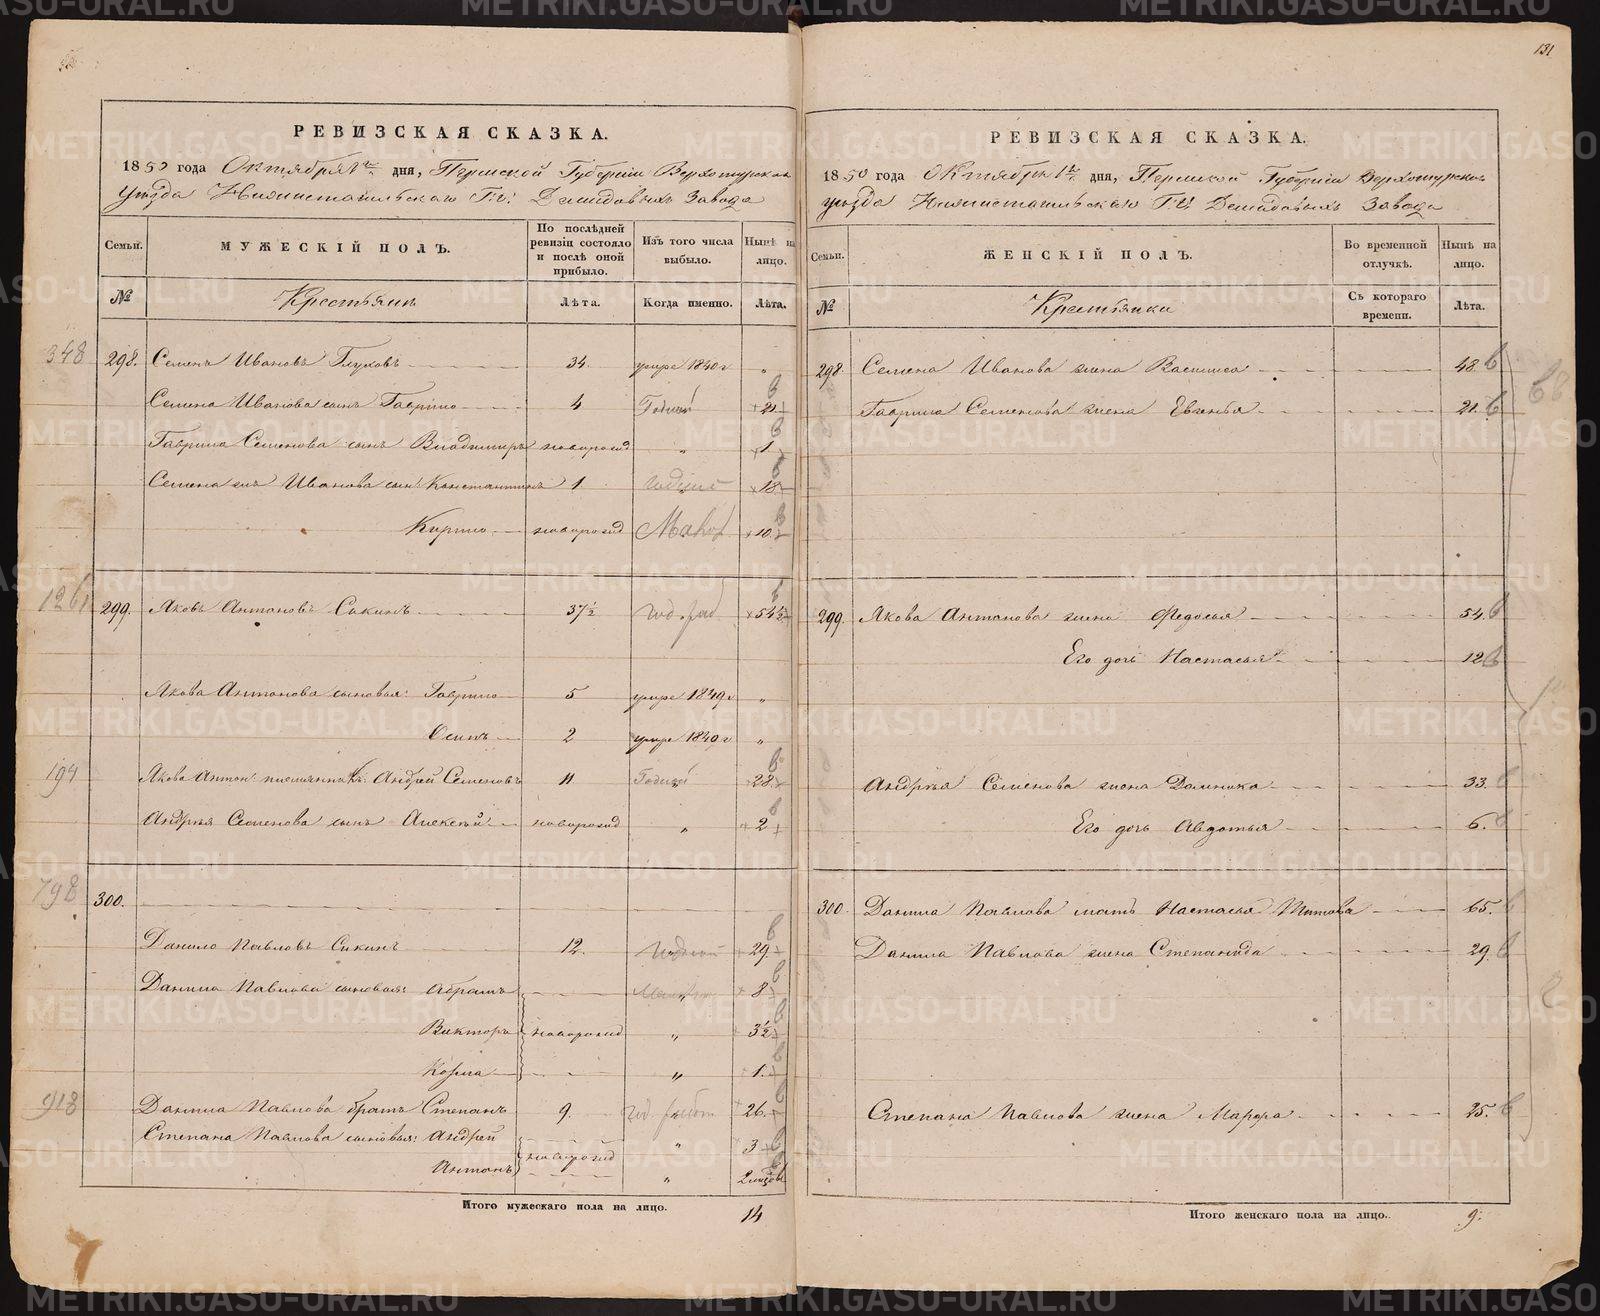 РЕВИЗСКАЯ СКАЗКА.
1850 года Октября 1го дня, Пермской Губерніи Верхотурскаго
уѣзда Нижнетагильскаго Г.г. Демидовыхъ Завода
Семьи. МУЖЕСКІЙ ПОЛЪ. По послѣдней ревизіи состояло и послѣ оной прибыло. Изъ того числа выбыло. Нынѣ на лицо.
№ Крестьянъ Лѣта. Когда именно. Лѣта.
348 298. Семенъ Ивановъ Глуховъ 34. умре 1840 г „
Семена Иванова сынъ Гаврило 4 Годный 21
Гаврила Семенова сынъ Владимиръ новорожд „ 1
Семена Иванова сын: Константинъ 1. годный 18
Кирило новорожд 10
1261 299. Яковъ Антоновъ Сикинъ 37½ 54½
Якова Антонова сыновья: Гаврило 5 умре 1849 г „
Осипъ 2 умре 1840 г „
194 Якова Антон: племянникъ: Андрей Семеновъ 11 Годный 28
Андрея Семенова сынъ Алексѣй новорожд „ 2
798 300.
Данило Павловъ Сикинъ 12. годный 29
Данила Павлова сыновья: Абрамъ „ 8
Викторъ новорожд „ 3½
Козма „ 1.
918 Данила Павлова братъ Степанъ 9. 26.
Степана Павлова сыновья: Андрей новорожд „ 3
Антонъ „ 2 мѣсяцовъ
Итого мужескаго пола на лицо. 14
131
РЕВИЗСКАЯ СКАЗКА.
1850 года Октября 1го дня, Пермской Губерніи Верхотурскаго
уѣзда Нижнетагильскаго Г.г. Демидовыхъ Завода
Семьи. ЖЕНСКІЙ ПОЛЪ. Во временной отлучкѣ. Нынѣ на лицо.
№ Крестьянки Съ котораго времени. Лѣта.
298 Семена Иванова жена Васи��иса 48.
Гаврила Семенова жена Евгенья 21.
299 Якова Антонова жена Федосья 54.
Его дочь Настасья 12
Андрея Семенова жена Домника 33.
Его дочь Авдотья 6.
300. Данила Павлова мать Настасья Титова 65.
Данила Павлова жена Степанида 29.
Степана Павлова жена Марфа 25.
Итого женскаго пола на лицо. 9.
METRIKI.GASO-URAL.RU